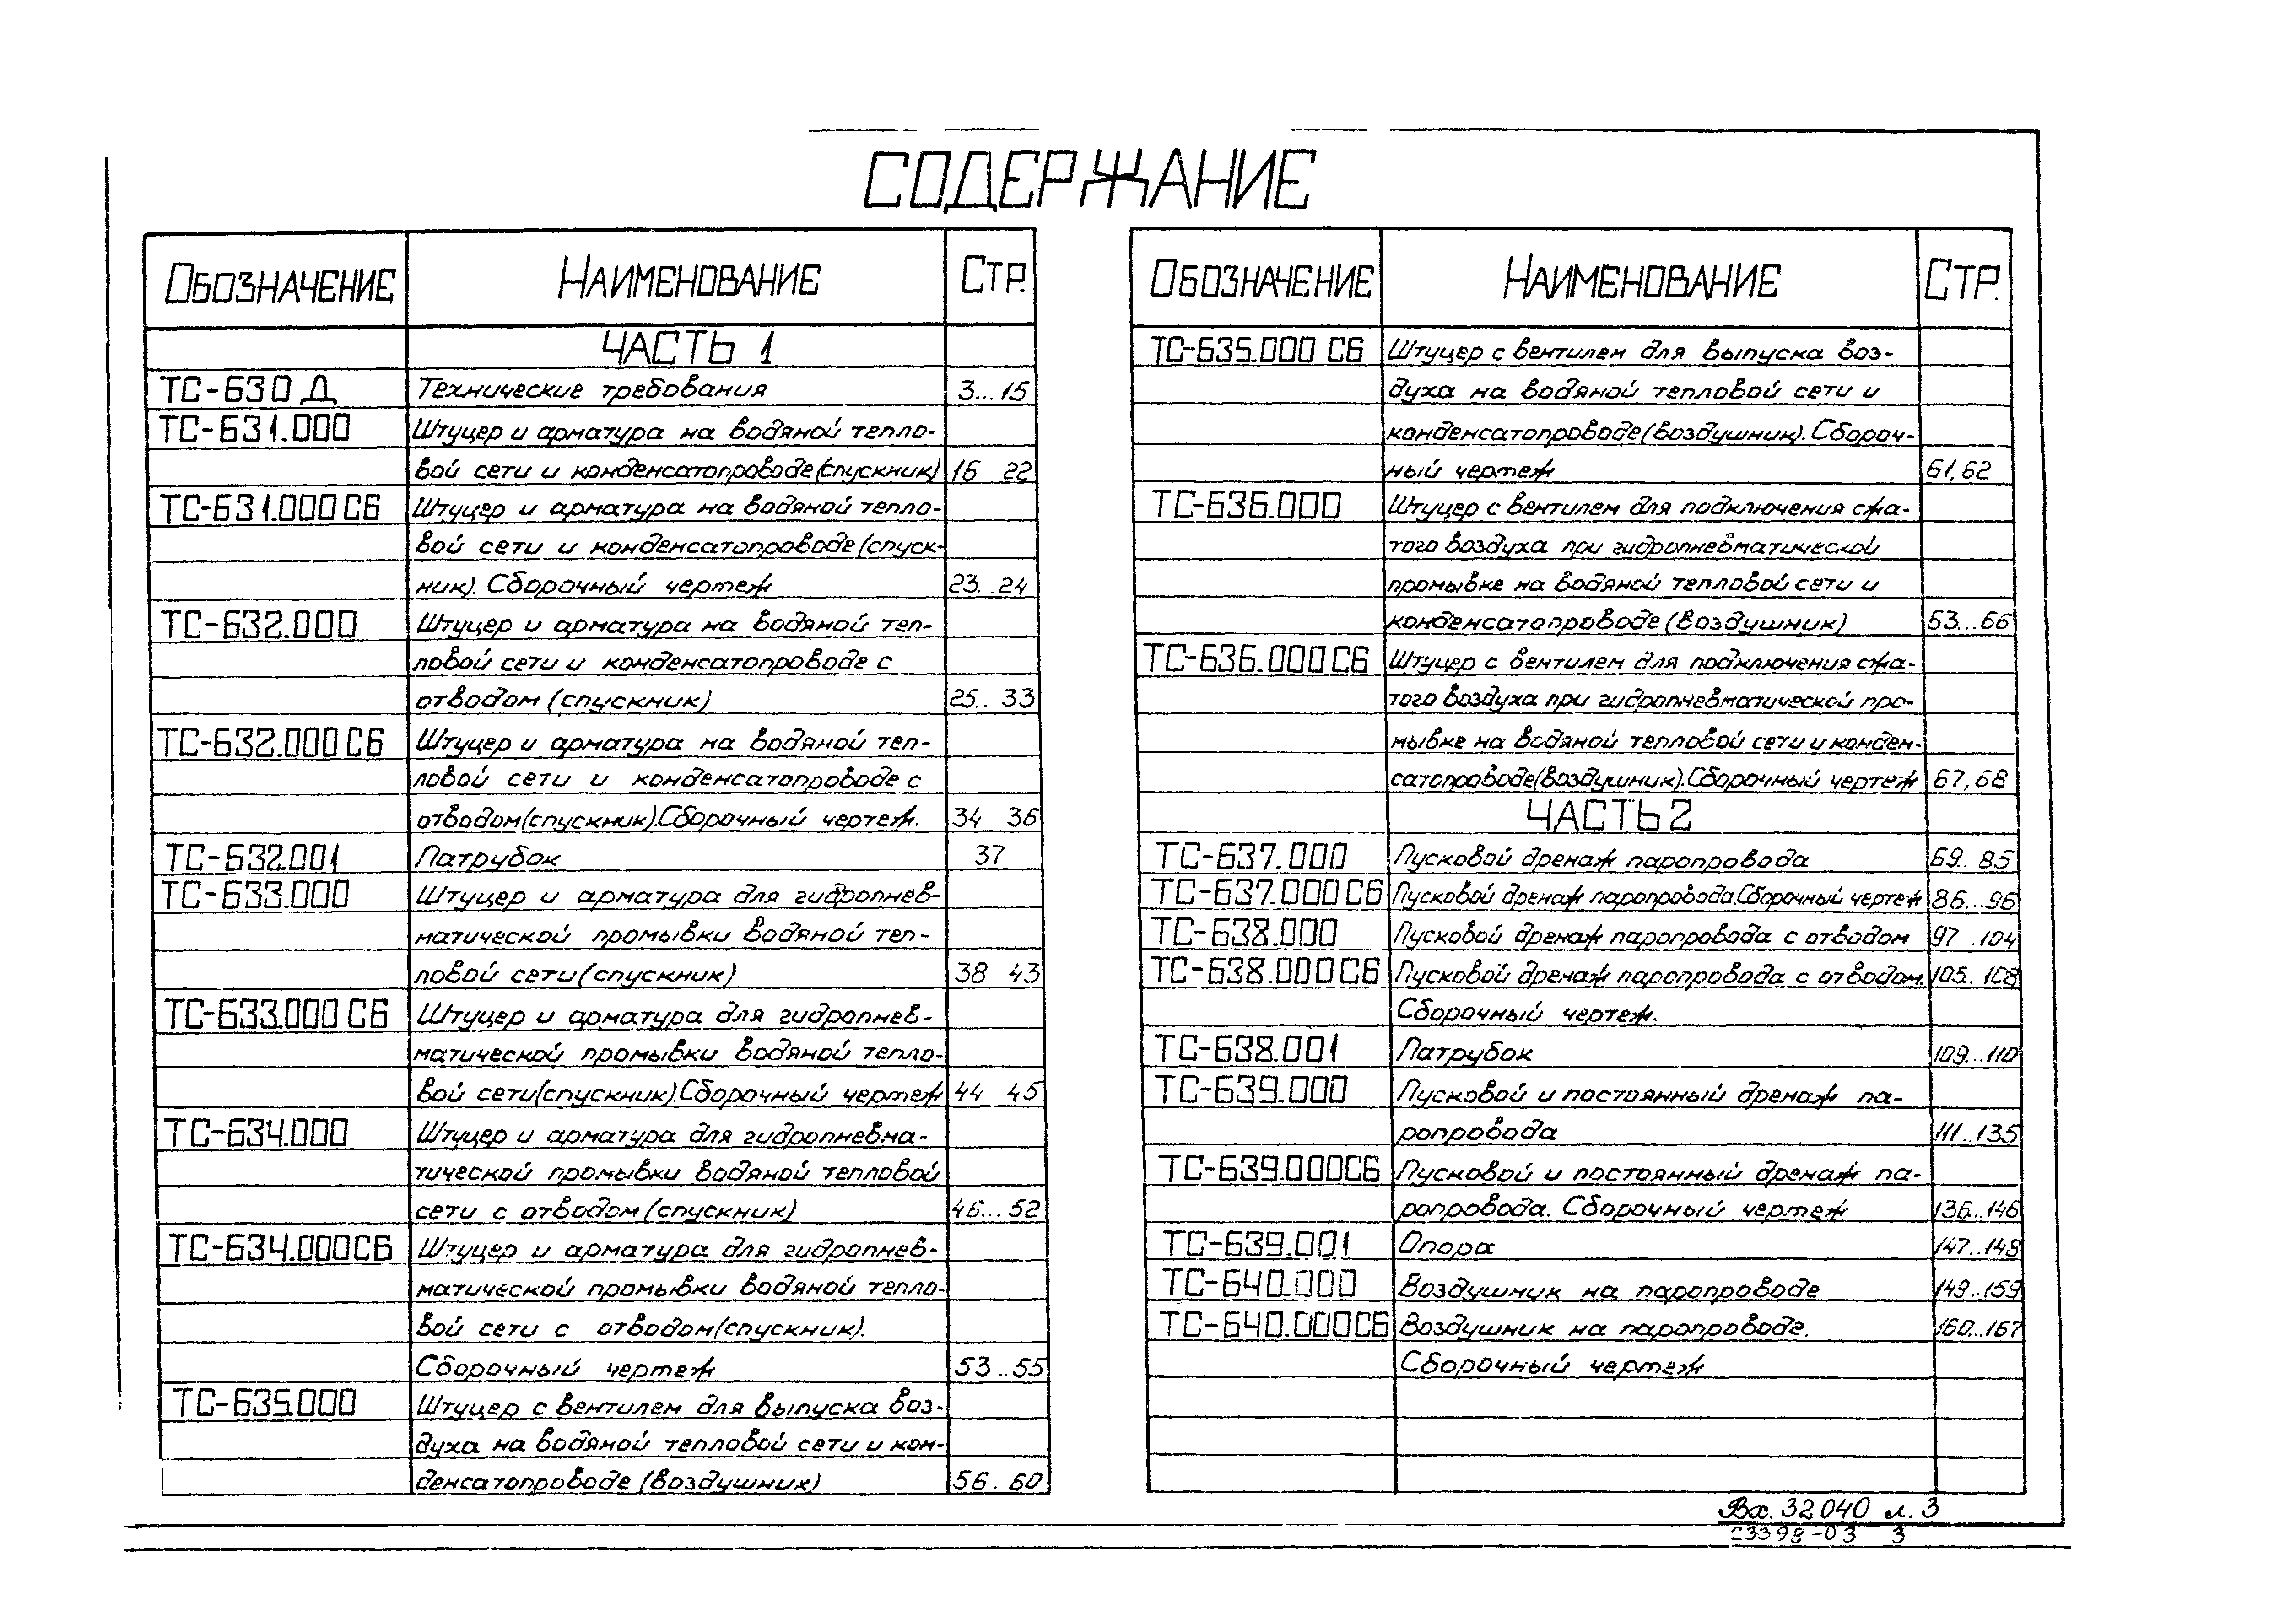 СОДЕРЖАНИЕ
ОБОЗНАЧЕНИЕ НАИМЕНОВАНИЕ СТР.
ЧАСТЬ 1
ТС-630 Д Технические требования 3...15
ТС-631.000 Штуцер и арматура на водяной тепло-
вой сети и конденсатопроводе(спускник) 16 22
ТС-631.000 СБ Штуцер и арматура на водяной тепло-
вой сети и конденсатопроводе (спуск-
ник). Сборочный чертеж 23..24
ТС-632.000 Штуцер и арматура на водяной теп-
ловой сети и конденсатопроводе с
отводом (спускник) 25..33
ТС-632.000 СБ Штуцер и арматура на водяной теп-
ловой сети и конденсатопроводе с
отводом(спускник).Сборочный чертеж. 34 36
ТС-632.001 Патрубок 37
ТС-633.000 Штуцер и арматура для гидропнев-
матической промывки водяной теп-
ловой сети (спускник) 38 43
ТС-633.000 СБ Штуцер и арматура для гидропнев-
матической промывки водяной тепло-
вой сети(спускник).Сборочный чертеж 44 45
ТС-634.000 Штуцер и арматура для гидропневма-
тической промывки водяной тепловой
сети с отводом (спускник) 46...52
ТС-634.000СБ Штуцер и арматура для гидропнев-
матической промывки водяной тепло-
вой сети с отводом(спускник).
Сборочный чертеж 53..55
ТС-635.000 Штуцер с вентилем для выпуска воз-
духа на водяной тепловой сети и кон-
денсатопроводе (воздушник) 56.60
ОБОЗНАЧЕНИЕ НАИМЕНОВАНИЕ СТР.
ТС-635.000 СБ Штуцер с вентилем для выпуска воз-
духа на водяной тепловой сети и
конденсатопроводе(воздушник). Сбороч-
ный чертеж 61,62
ТС-636.000 Штуцер с вентилем для подключения сжа-
того воздуха при гидропневматической
промывке на водяной тепловой сети и
конденсатопроводе (воздушник) 63...66
ТС-636.000 СБ Штуцер с вентилем для подключения сжа-
того воздуха при гидропневматической про-
мывке на водяной тепловой сети и конден-
сатопроводе(воздушник).Сборочный чертеж 67,68
ЧАСТЬ 2
ТС-637.000 Пусковой дренаж паропровода 69..85
ТС-637.000 СБ Пусковой дренаж паропровода.Сборочный чертеж 86...96
ТС-638.000 Пусковой дренаж паропровода с отводом 97 .104
ТС-638.000СБ Пусковой дренаж паропровода с отводом. 105..108
Сборочный чертеж.
ТС-638.001 Патрубок 109...110
ТС-639.000 Пусковой и постоянный дренаж па-
ропровода 111..135
ТС-639.000СБ Пусковой и постоянный дренаж па-
ропровода. Сборочный чертеж 136...146
ТС-639.001 Опора 147..148
ТС-640.000 Воздушник на паропроводе 149..159
ТС-640.000СБ Воздушник на паропроводе. 160...167
Сборочный чертеж
Вх. 32040 л. 3
23398-03 3